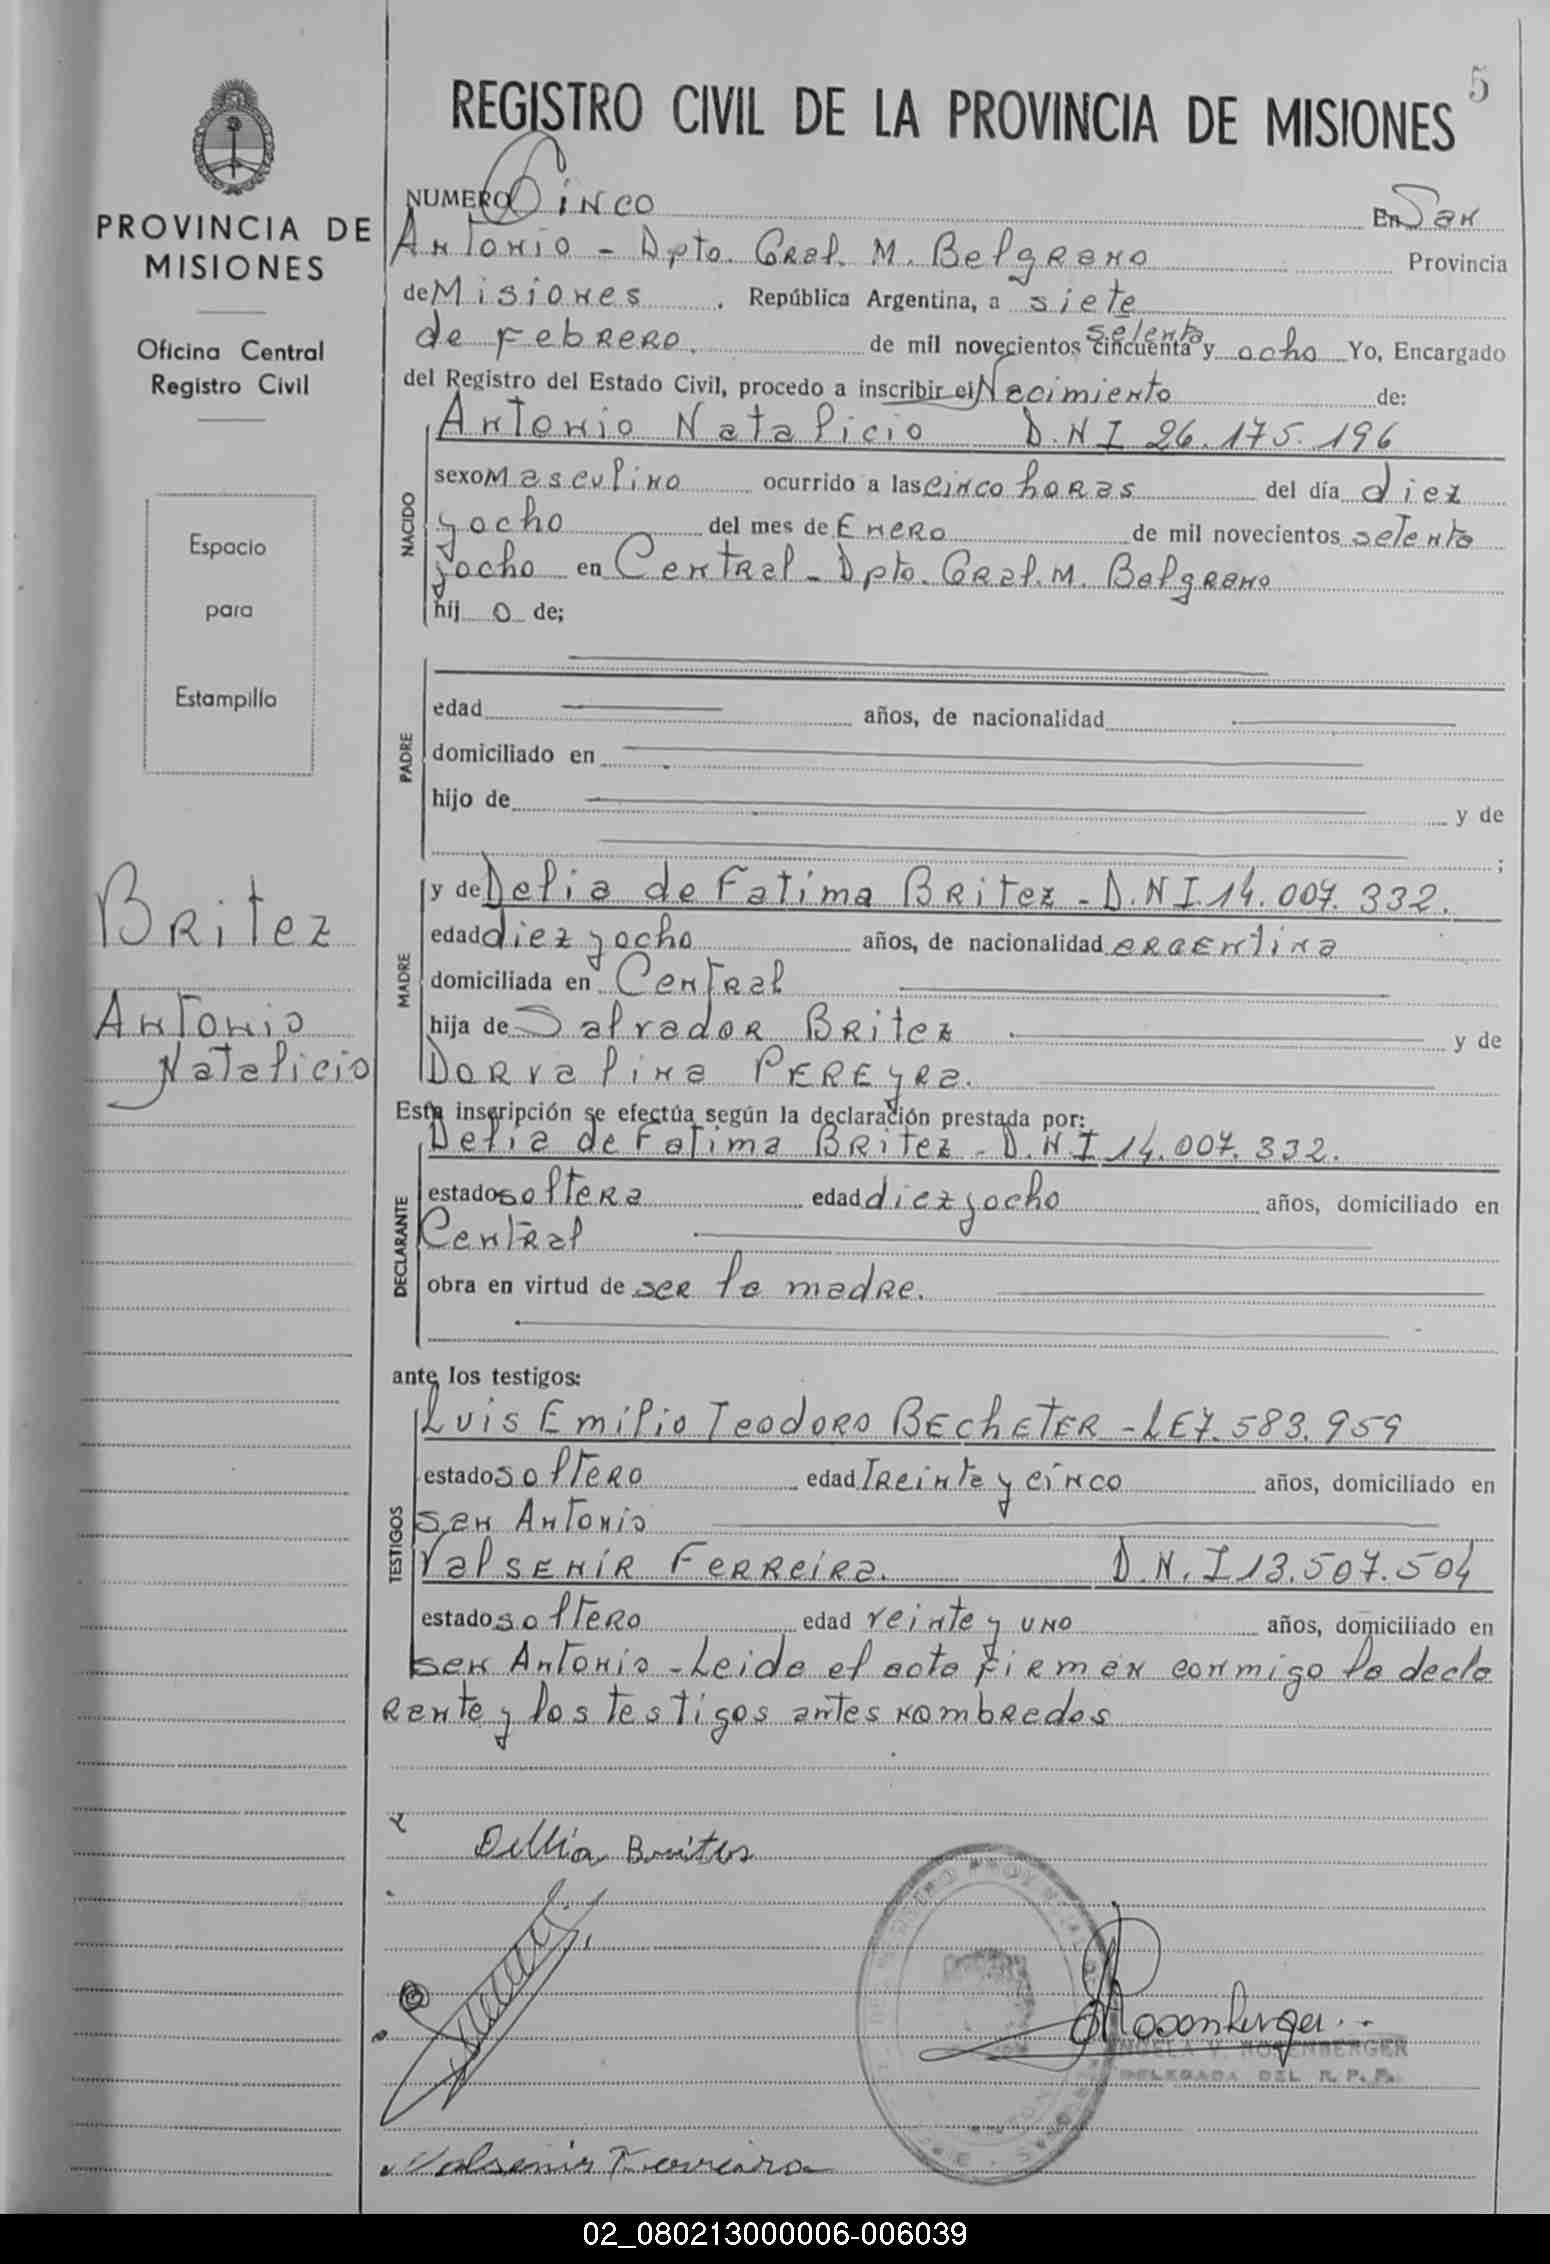 5
REGISTRO CIVIL DE LA PROVINCIA DE MISIONES
PROVINCIA DE
MISIONES
Oficina Central
Registro Civil
Espacio
para
Estampilla
Britez
Antonio
Natalicio
NUMERO Cinco En San
Antonio - Dpto. Gral. M. Belgrano Provincia
de Misiones. República Argentina, a siete
de Febrero. de mil novecientos cincuenta setenta y ocho Yo, Encargado
del Registro del Estado Civil, procedo a inscribir el Nacimiento de:
NACIDO
Antonio Natalicio D.N.I 26.175.196
sexo Masculino ocurrido a las cinco horas del día diez
y ocho del mes de Enero de mil novecientos setenta
y ocho en Central - Dpto. Gral. M. Belgrano
hij o de;
PADRE
edad años, de nacionalidad
domiciliado en
hijo de y de
;
MADRE
y de Delia de Fatima Britez - D.N.I. 14.007.332.
edad diez y ocho años, de nacionalidad argentina
domiciliada en Central
hija de Salvador Britez y de
Dorvalina Pereyra.
Esta inscripción se efectúa según la declaración prestada por:
DECLARANTE
Delia de Fatima Britez - D.N.I 14.007.332.
estado soltera edad diez y ocho años, domiciliado en
Central
obra en virtud de ser la madre.
ante los testigos:
TESTIGOS
Luis Emilio Teodoro Becheter - LE 7.583.959
estado soltero edad Treinta y cinco años, domiciliado en
San Antonio
Valsenir Ferreira. D.N.I 13.507.504
estado soltero edad veinte y uno años, domiciliado en
san Antonio - Leida el acta firman conmigo la decla
rante y los testigos antes nombrados
Dellia Britos
Rosenberger
ANGELA V. ROSENBERGER
DELEGADA DEL R. P. P.
Valsenir Ferreira
02_080213000006-006039